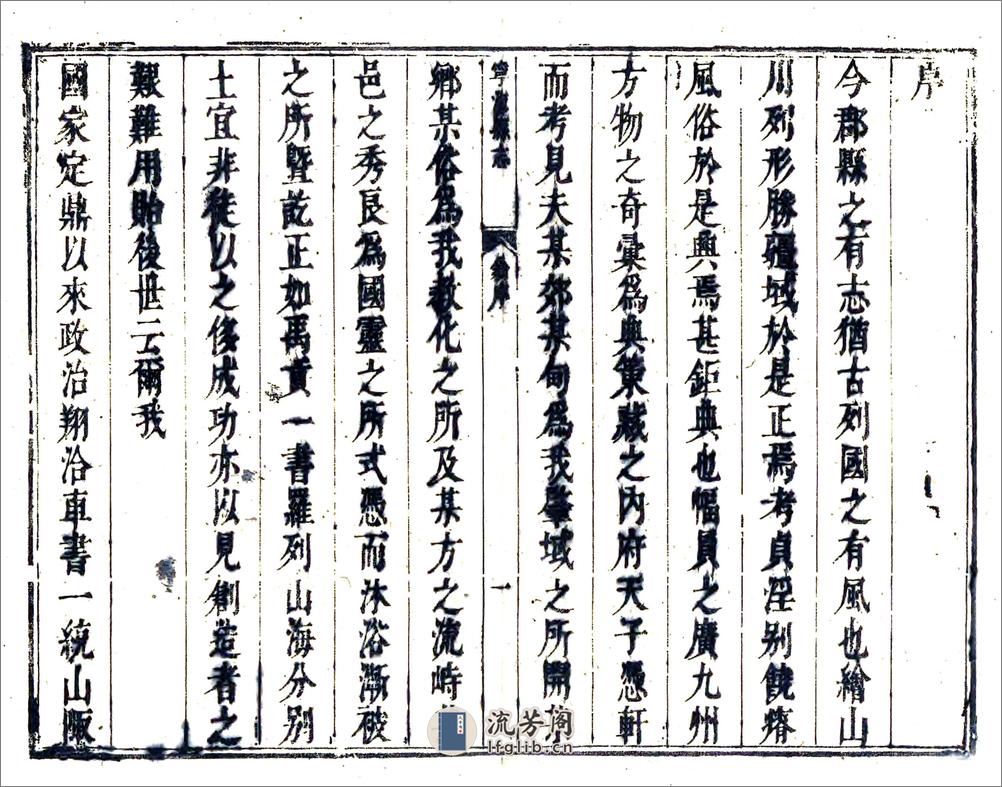 序
今郡縣之有志猶古列國之有風也繪山
川列形勝疆域於是正焉考貞淫别饒瘠
風俗於是興焉甚鉅典也幅員之廣九州
方物之奇彙為典策藏之內府天子憑軒
而考見夫某郊某甸爲我肇域之所開某
志 序 一
鄉某俗爲我教化之所及某方之流峙
邑之秀良爲國靈之所式憑而沐浴漸被
之所暨訖正如禹貢一書羅列山海分别
土宜非徒以之侈成功亦以見創造者之
艱難用貽後世云爾我
國家定鼎以來政治翔洽車書一統山陬
流芳阁
lfglib.cn